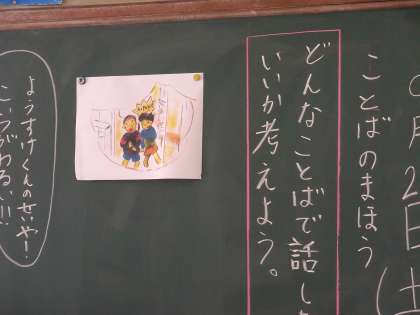 月2日(土
ことばのまほう
どんなことばで話し
いいか考えよう。
ようすけくんのせいや！
こうがわるい!!